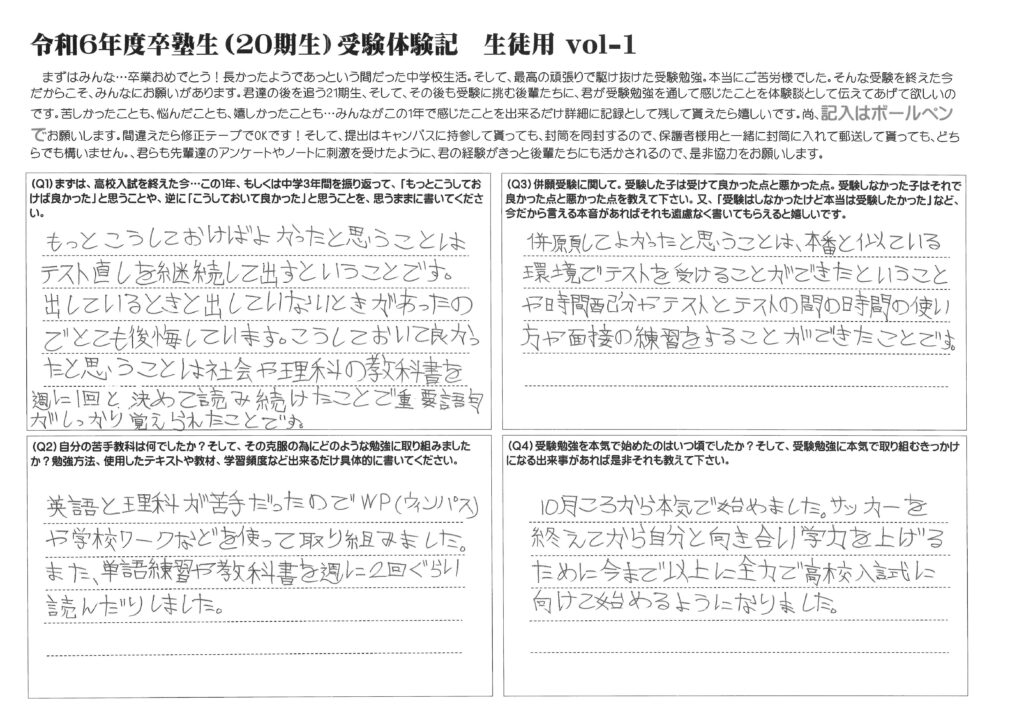 令和6年度卒塾生(20期生)受験体験記 生徒用 vol-1
まずはみんな…卒業おめでとう！長かったようであっという間だった中学校生活。そして、最高の頑張りで駆け抜けた受験勉強。本当にご苦労様でした。そんな受験を終えた今
だからこそ、みんなにお願いがあります。君達の後を追う21期生、そして、その後も受験に挑む後輩たちに、君が受験勉強を通して感じたことを体験談として伝えてあげて欲しいの
です。苦しかったことも、悩んだことも、嬉しかったことも…みんながこの1年で感じたことを出来るだけ詳細に記録として残して貰えたら嬉しいです。尚、記入はボールペン
でお願いします。間違えたら修正テープでOKです！そして、提出はキャンパスに持参して貰っても、封筒を同封するので、保護者様用と一緒に封筒に入れて郵送して貰っても、どち
らでも構いません。、君らも先輩達のアンケートやノートに刺激を受けたように、君の経験がきっと後輩たちにも活かされるので、是非協力をお願いします。
(Q1)まずは、高校入試を終えた今…この1年、もしくは中学3年間を振り返って、「もっとこうしてお
けば良かった」と思うことや、逆に「こうしておいて良かった」と思うことを、思うままに書いてくださ
い。
もっとこうしておけばよかったと思うことは
テスト直しを継続して出すということです。
出しているときと出していないときがあったの
でとても後悔しています。こうしておいて良かっ
たと思うことは社会や理科の教科書を
週に1回と決めて読み続けたことで重要語句
がしっかり覚えられたことです。
(Q2)自分の苦手教科は何でしたか？そして、その克服の為にどのような勉強に取り組みました
か？勉強方法、使用したテキストや教材、学習頻度など出来るだけ具体的に書いてください。
英語と理科が苦手だったのでWP(ウィンパス)
や学校ワークなどを使って取り組みました。
また、単語練習や教科書を週に2回ぐらい
読んだりしました。
(Q3)併願受験に関して。受験した子は受けて良かった点と悪かった点。受験しなかった子はそれで
良かった点と悪かった点を教えて下さい。又、「受験はしなかったけど本当は受験したかった」など、
今だから言える本音があればそれも遠慮なく書いてもらえると嬉しいです。
併願してよかったと思うことは、本番と似ている
環境でテストを受けることができたということ
や時間配分やテストとテストの間の時間の使い
方や面接の練習をすることができたことです。
(Q4)受験勉強を本気で始めたのはいつ頃でしたか？そして、受験勉強に本気で取り組むきっかけ
になる出来事があれば是非それも教えて下さい。
10月ころから本気で始めました。サッカーを
終えてから自分と向き合い学力を上げる
ために今まで以上に全力で高校入試に
向けて始めるようになりました。